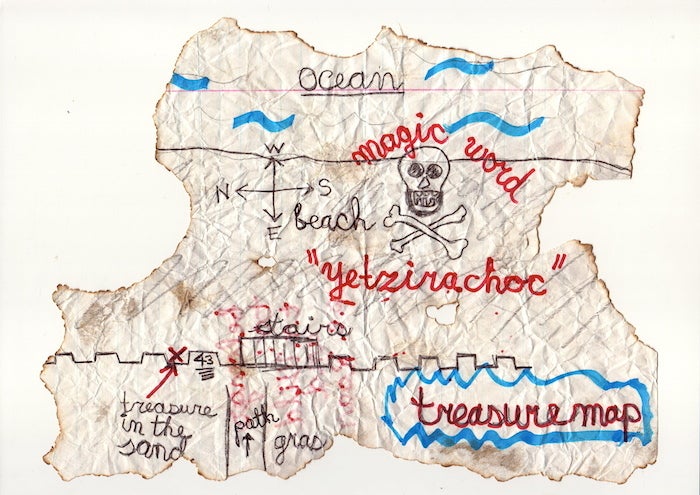 ocean
magic word
W
N S
E
beach
"yetzirachoc"
stairs
x 43
treasure
in the
sand
path
gras
treasure map